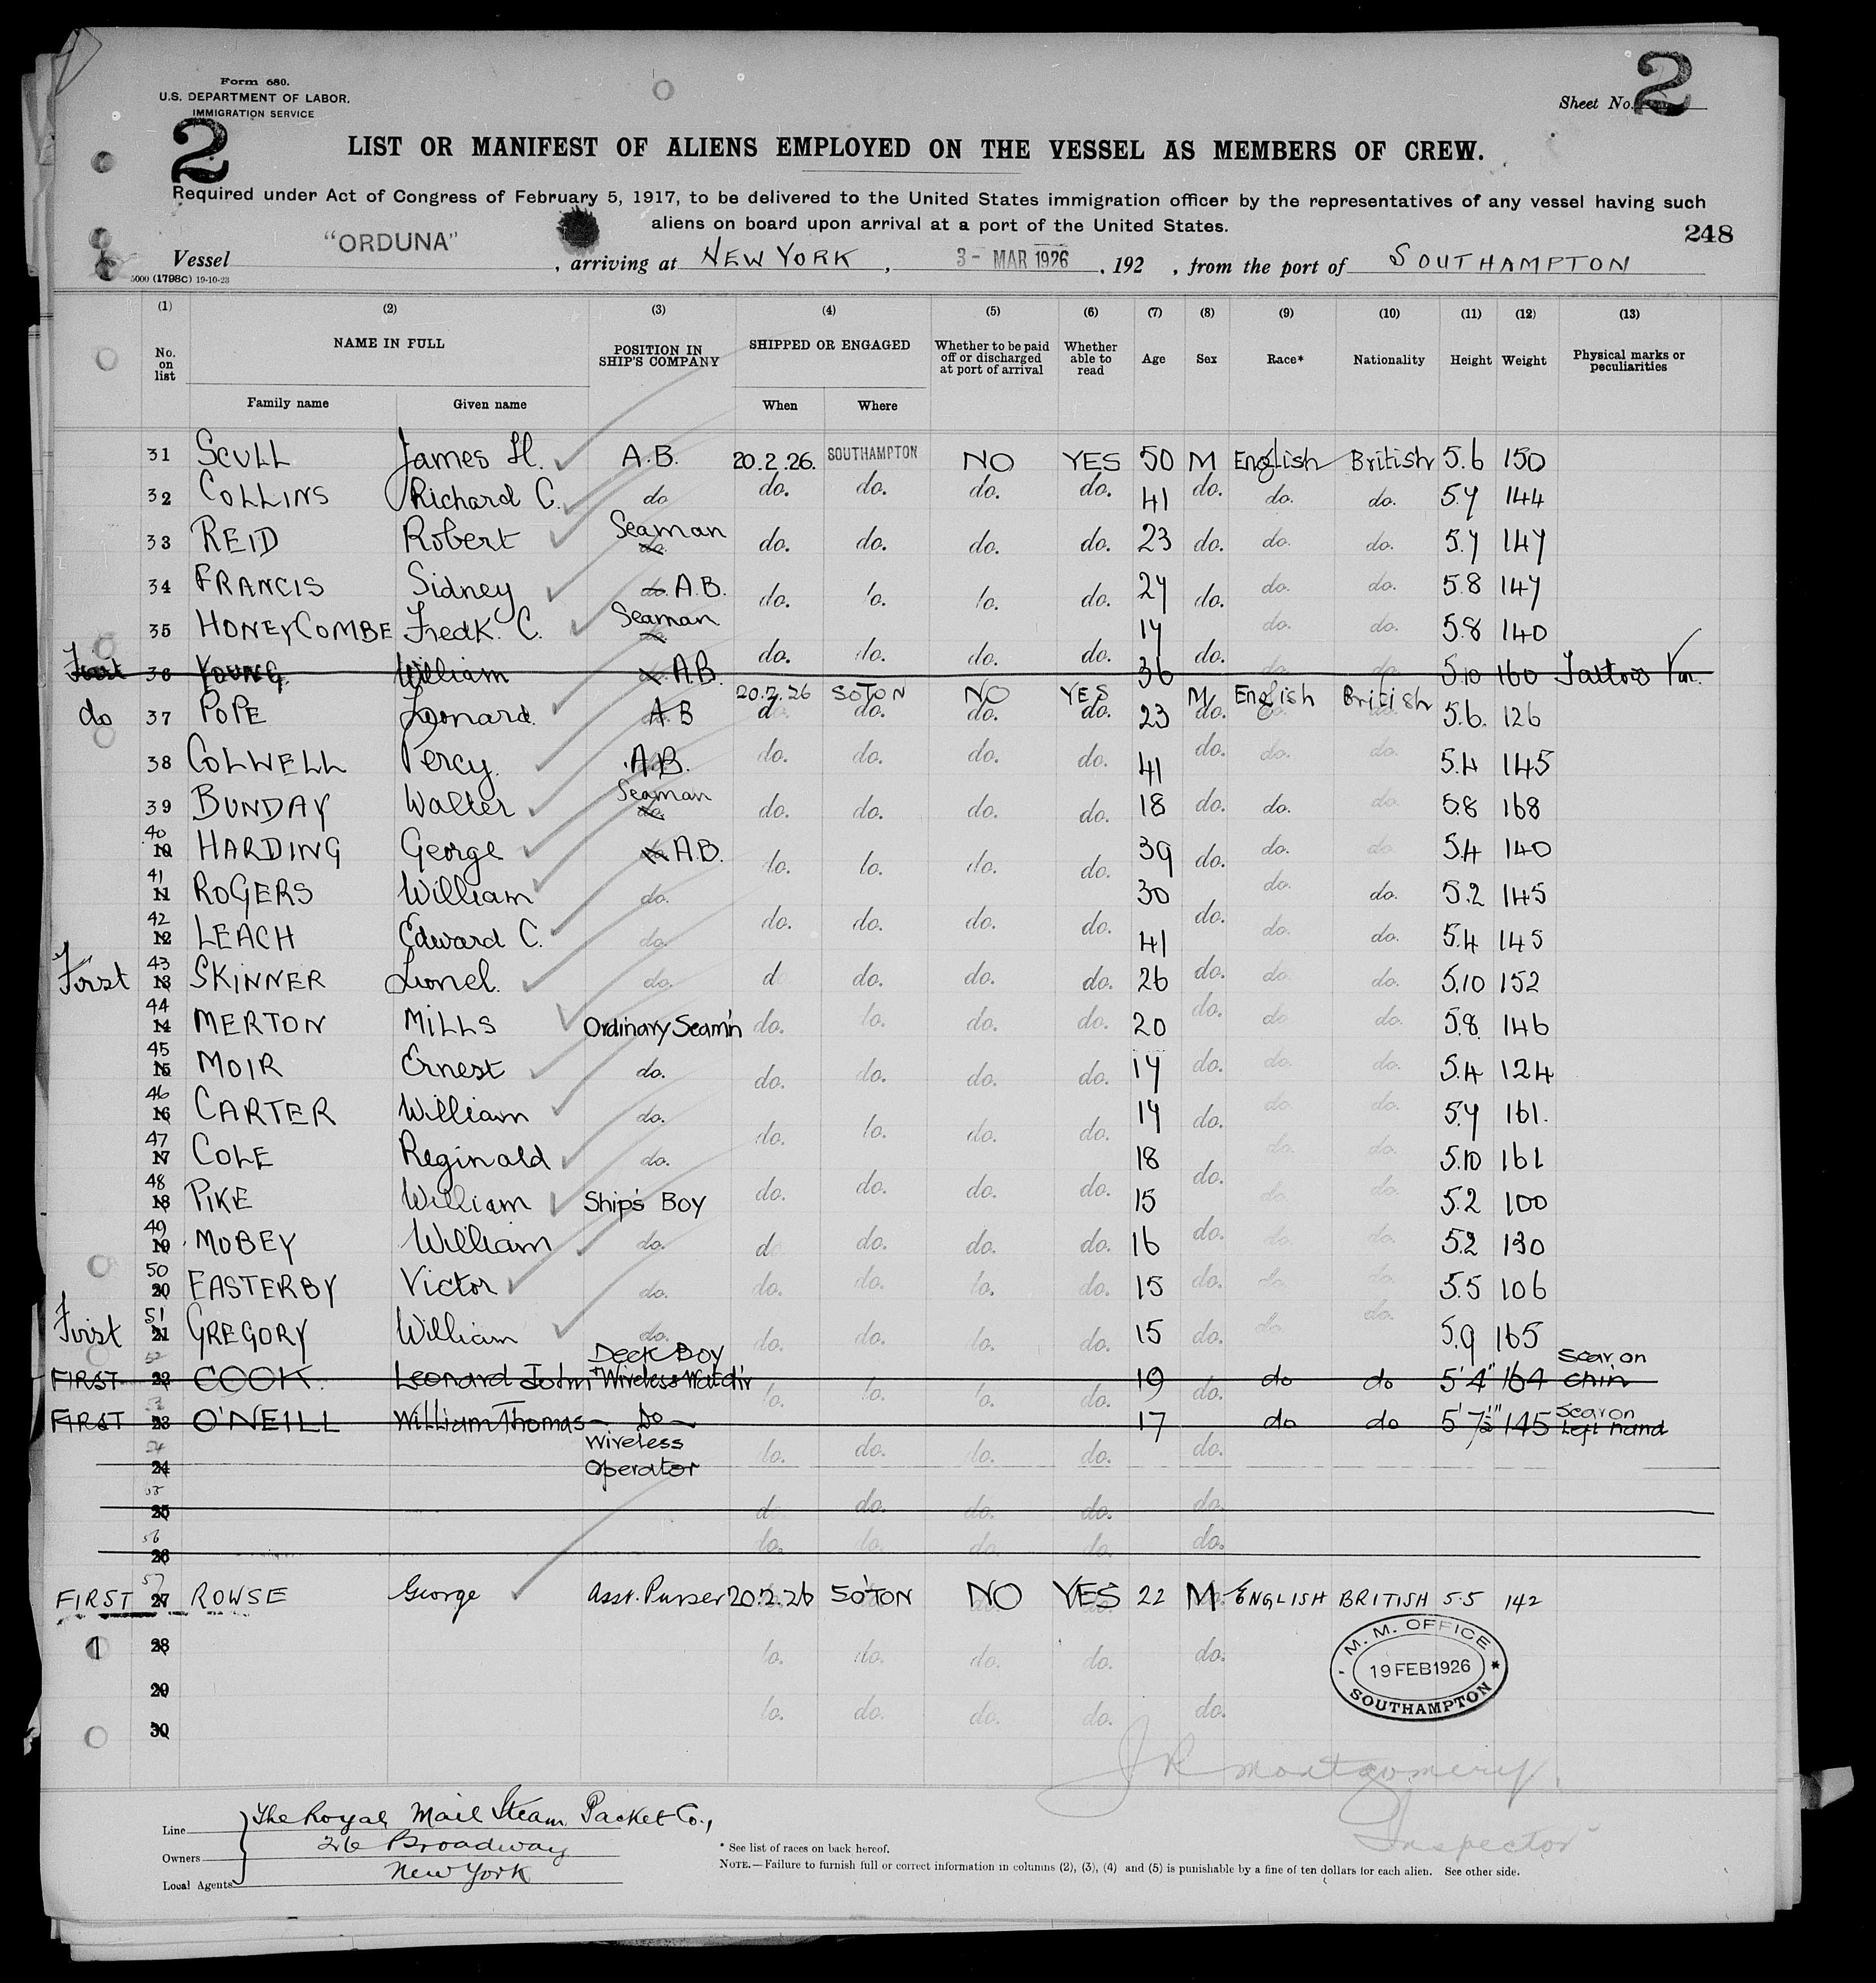 Form 680.
U.S. DEPARTMENT OF LABOR.
IMMIGRATION SERVICE
2
Sheet No. 2
LIST OR MANIFEST OF ALIENS EMPLOYED ON THE VESSEL AS MEMBERS OF CREW.
Required under Act of Congress of February 5, 1917, to be delivered to the United States immigration officer by the representatives of any vessel having such
aliens on board upon arrival at a port of the United States.
248
Vessel "ORDUNA", arriving at NEW YORK, 3- MAR 1926, 192 , from the port of SOUTHAMPTON
5000 (1798C) 19-10-23
(1) (2) (3) (4) (5) (6) (7) (8) (9) (10) (11) (12) (13)
No. on list NAME IN FULL POSITION IN SHIP'S COMPANY SHIPPED OR ENGAGED Whether to be paid off or discharged at port of arrival Whether able to read Age Sex Race* Nationality Height Weight Physical marks or peculiarities
Family name Given name When Where
31 SCULL James H. A.B. 20.2.26. SOUTHAMPTON NO YES 50 M English British 5.6 150
32 COLLINS Richard C. do do. do. do. do. 41 do. do. do. 5.7 144
33 REID Robert Seaman do. do. do. do. do. 23 do. do. do. 5.7 147
34 FRANCIS Sidney do. A.B. do. do. do. do. 27 do. do. do. 5.8 147
35 HONEYCOMBE Fredk. C. Seaman do. do. do. do. 17 do. do. do. 5.8 140
First 36 YOUNG William A.B. 36 do. do. 5.10 160 Tattoo
20.2.26 SOTON NO YES M English British
do 37 POPE Leonard. A B d do. do. do. 23 do. 5.6. 126
38 COLWELL Percy. A.B. do. do. do. do. 41 do. do. do. 5.4 145
39 BUNDAY Walter Seaman do. do. do. do. do. 18 do. do. do. 5.8 168
40 10 HARDING George A.B. do. do. do. do. 39 do. do. do. 5.4 140
41 11 ROGERS William do. 30 do. do. 5.2 145
42 12 LEACH Edward C. do. do. do. do. do. 41 do. do. do. 5.4 145
First 43 13 SKINNER Lionel. do. d do. do. do. 26 do. do. do. 5.10 152
44 14 MERTON MILLS Ordinary Seam'n do. do. do. do. 20 do. do do. 5.8 146
45 15 MOIR Ernest do. do. do. do. do. 17 do. do. do. 5.4 124
46 16 CARTER William do. do. do. do. do. 17 do. do. do. 5.7 161.
47 17 COLE Reginald do. 18 do. do. do. 5.10 161
48 18 PIKE William Ship's Boy do. do. do. do. 15 do. do. 5.2 100
49 19 MOBEY William do. d do. do. do. 16 do. do. do. 5.2 130
50 20 EASTERBY Victor do. do. do. do. do. 15 do. do. do. 5.5 106
First 51 21 GREGORY William do. do. do. do. do. 15 do. do. do. 5.9 165
FIRST 52 22 COOK. Leonard John Deck Boy + Wireless Watch'r do. do. do. do. 19 do. do do 5'4" 164 Scar on Chin
FIRST 53 23 O'NEILL William Thomas Do 17 do do 5'7½" 145 Scar on Left hand
54 24 Wireless Operator do. do. do. do. do.
55 25 d do. do. do. do.
56 26 do. do. do. do. do.
FIRST 57 27 ROWSE George Asst. Purser 20.2.26 SO'TON NO YES 22 M ENGLISH BRITISH 5.5 142
28 do. do. do. do. do.
29
30 do. do. do. do. do.
M. M. OFFICE
19 FEB 1926
SOUTHAMPTON
J R Montgomery.
Inspector
Line The Royal Mail Steam Packet Co.,
Owners 26 Broadway
Local Agents New York
* See list of races on back hereof.
NOTE.—Failure to furnish full or correct information in columns (2), (3), (4) and (5) is punishable by a fine of ten dollars for each alien. See other side.